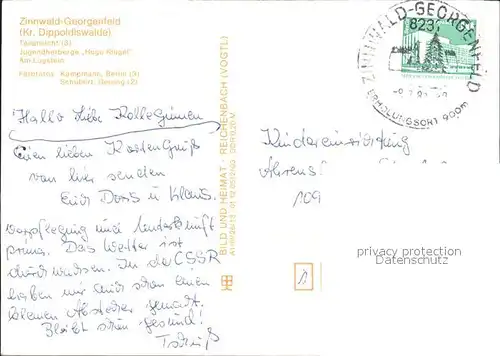 Zinnwald-Georgenfeld
(Kr. Dippoldiswalde)
Teilansicht (3)
Jugendherberge „Hugo Klügel"
Am Lugstein
Farbfotos: Kampmann, Berlin (3)
Schubert, Geising (2)
Hallo liebe Kolleginnen
Einen lieben Kartengruß
von hier senden
Euch Doris u Klaus.
Verpflegung und Unterkunft
prima. Das Wetter ist
durchwachsen. In der CSSR
haben wir auch schon einen
kleinen Abstecher gemacht.
Bleibt schön gesund!
Tschüß
BILD UND HEIMAT · REICHENBACH (VOGTL)
ZINNWALD-GEORGENFELD
823
ERHOLUNGSORT 900m
Kindereinrichtung
109
privacy protection
Datenschutz